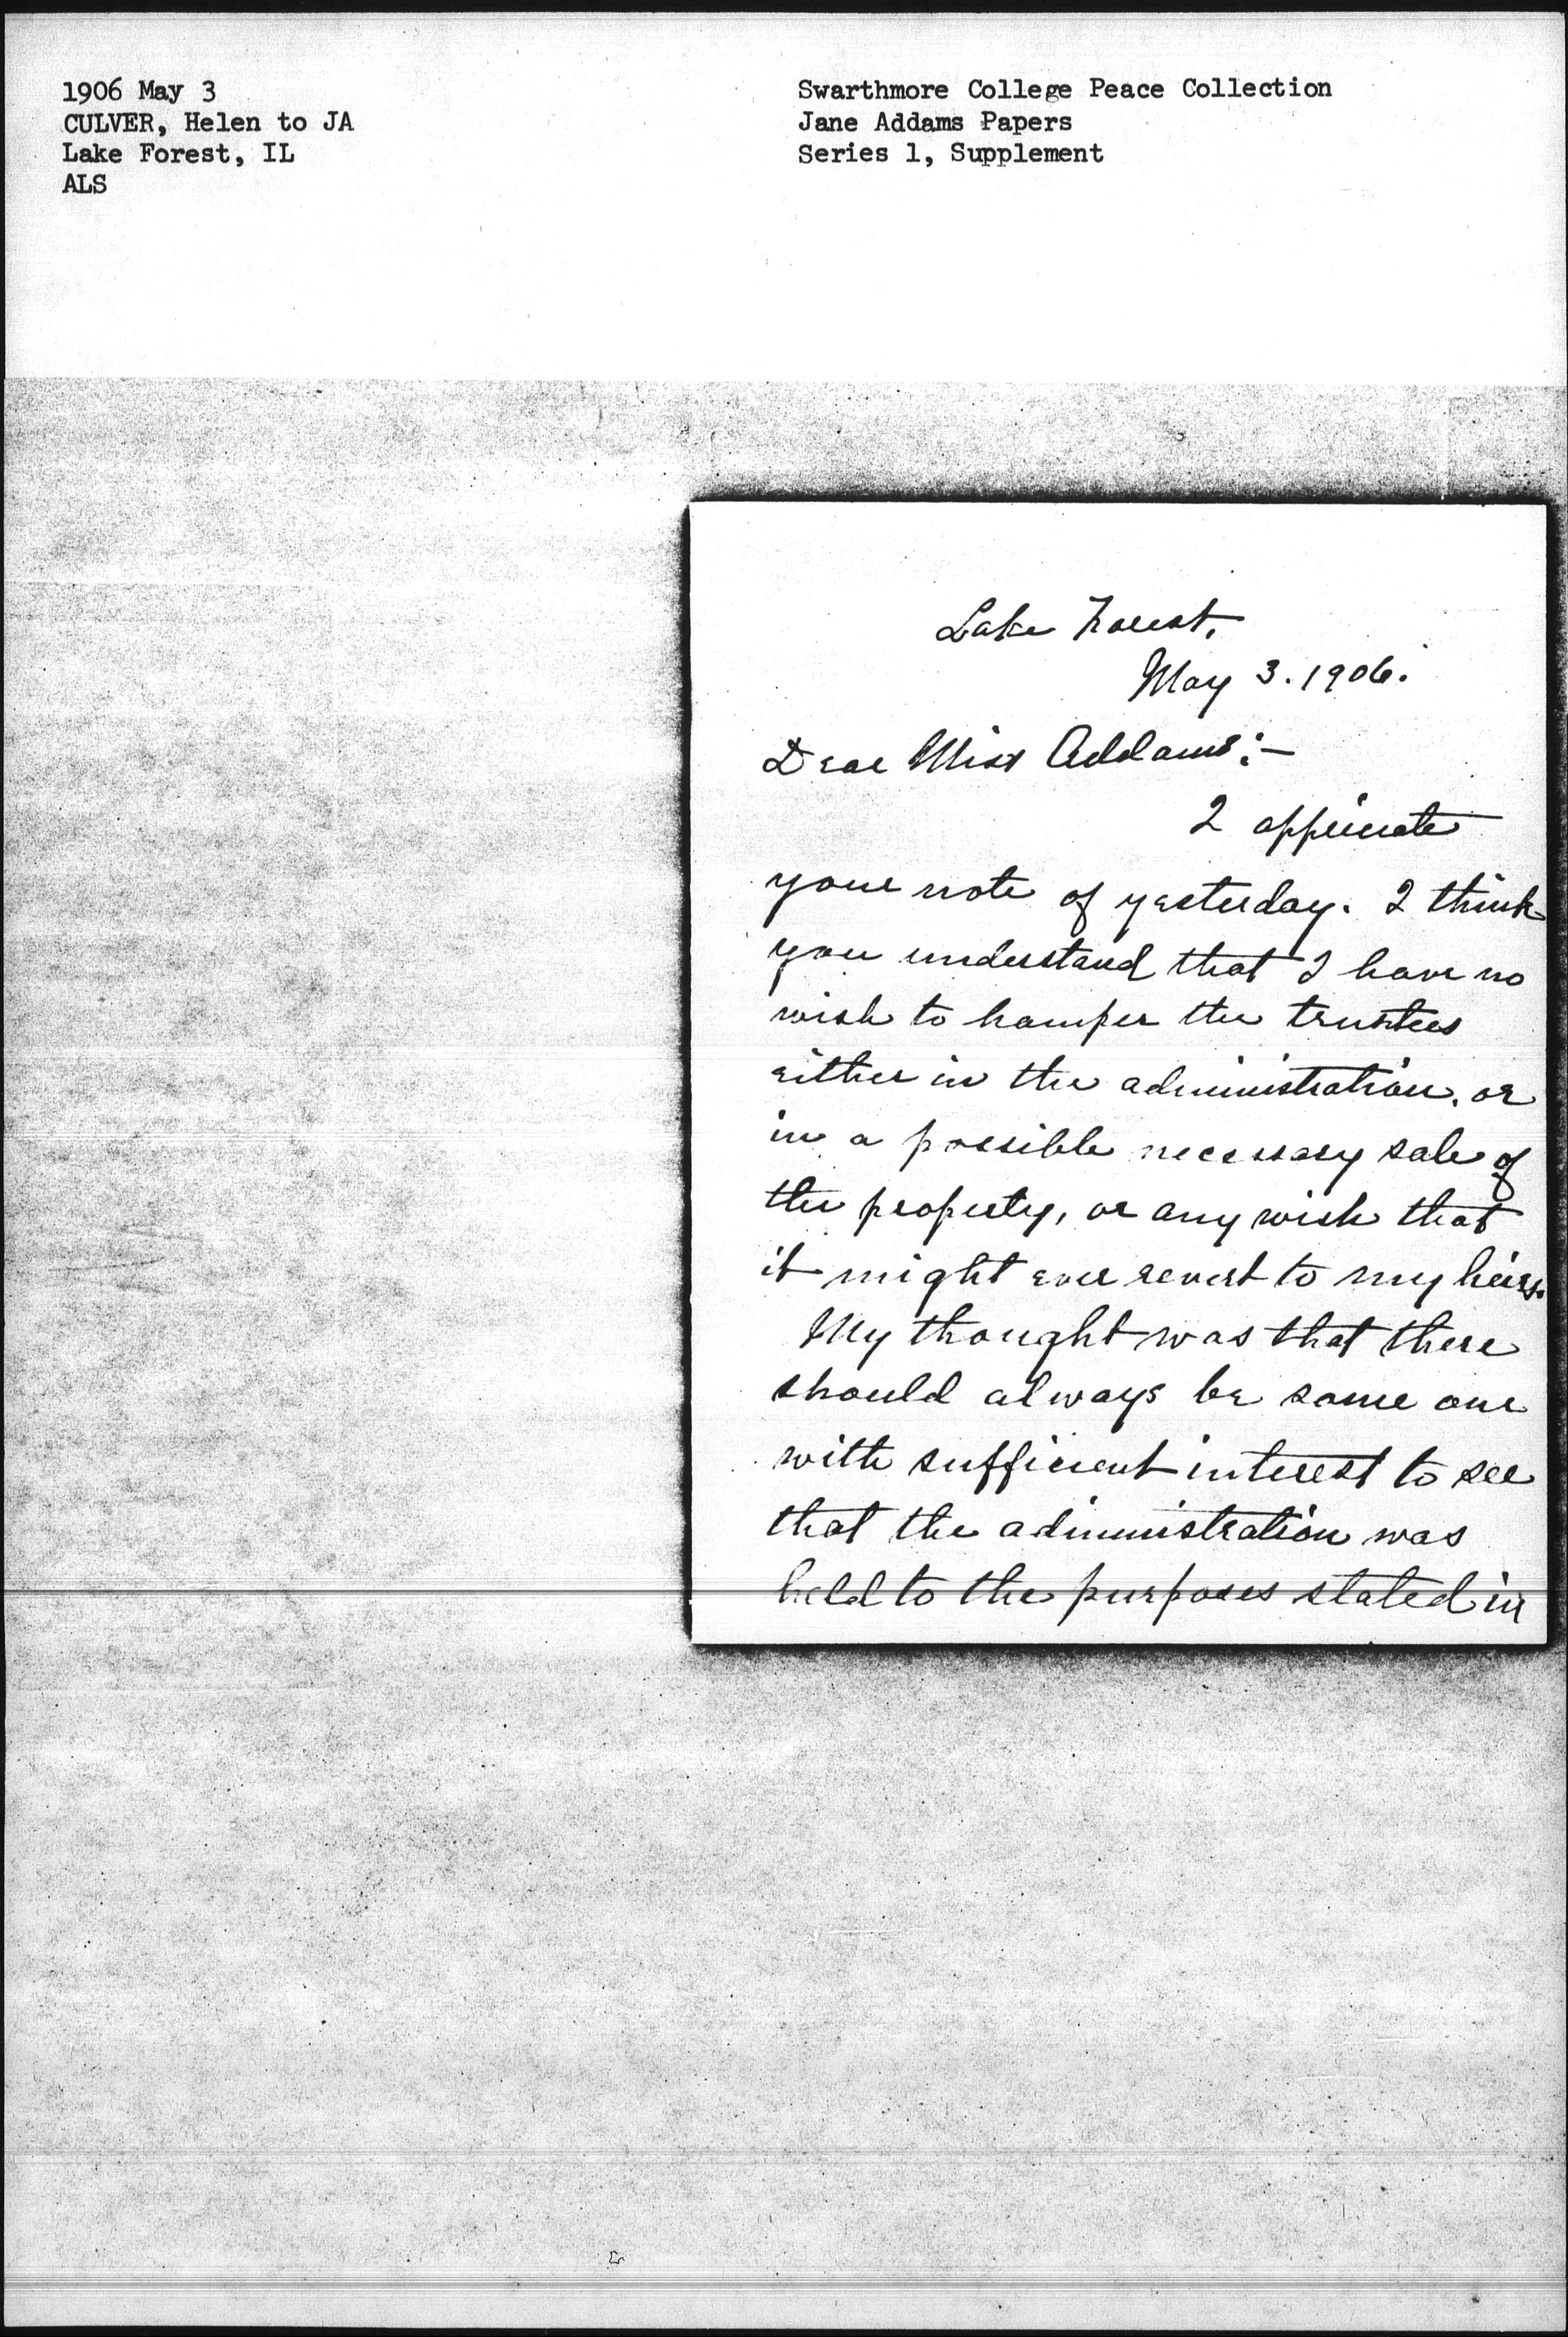 1906 May 3
CULVER, Helen to JA
Lake Forest, IL
ALS
Swarthmore College Peace Collection
Jane Addams Papers
Series 1, Supplement
Lake Forest,
May 3. 1906.
Dear Miss Addams:—
I appreciate
your note of yesterday. I think
you understand that I have no
wish to hamper the trustees
either in the administration, or
in a possible necessary sale of
the property, or any wish that
it might ever revert to my heirs.
My thought was that there
should always be some one
with sufficient interest to see
that the administration was
held to the purposes stated in